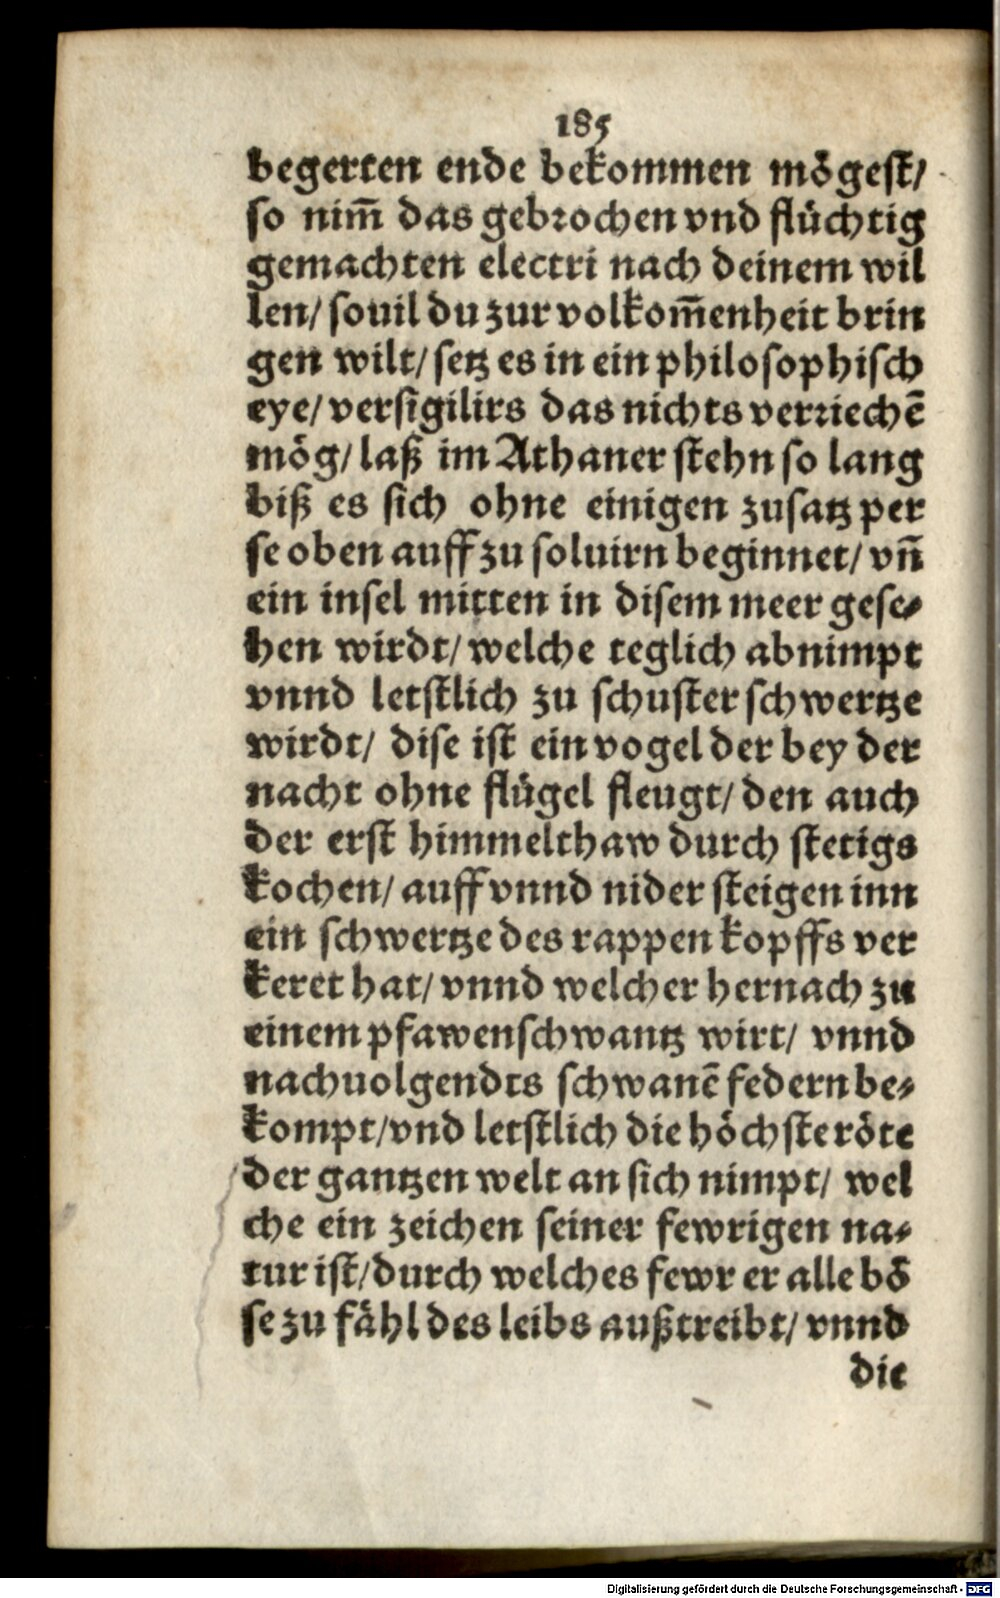 185
begerten ende bekommen mögest/
so nim̄ das gebrochen vnd flüchtig
gemachten electri nach deinem wil
len/ souil du zur volkom̄enheit brin
gen wilt/ setz es in ein philosophisch
eye/ versigilirs das nichts verriechē
mög/ laß im Athaner stehn so lang
biß es sich ohne einigen zusatz per
se oben auff zu soluirn beginnet/ vn̄
ein insel mitten in disem meer gese-
hen wirdt/ welche teglich abnimpt
vnnd letstlich zu schuster schwertze
wirdt/ dise ist ein vogel der bey der
nacht ohne flügel fleugt/ den auch
der erst himmelthaw durch stetigs
kochen/ auff vnnd nider steigen inn
ein schwertze des rappen kopffs ver
keret hat/ vnnd welcher hernach zu
einem pfawenschwantz wirt/ vnnd
nachuolgendts schwanē federn be-
kompt/ vnd letstlich die höchste röte
der gantzen welt an sich nimpt/ wel
che ein zeichen seiner fewrigen na-
tur ist/ durch welches fewr er alle bö
se zu fähl des leibs außtreibt/ vnnd
die
Digitalisierung gefördert durch die Deutsche Forschungsgemeinschaft - DFG